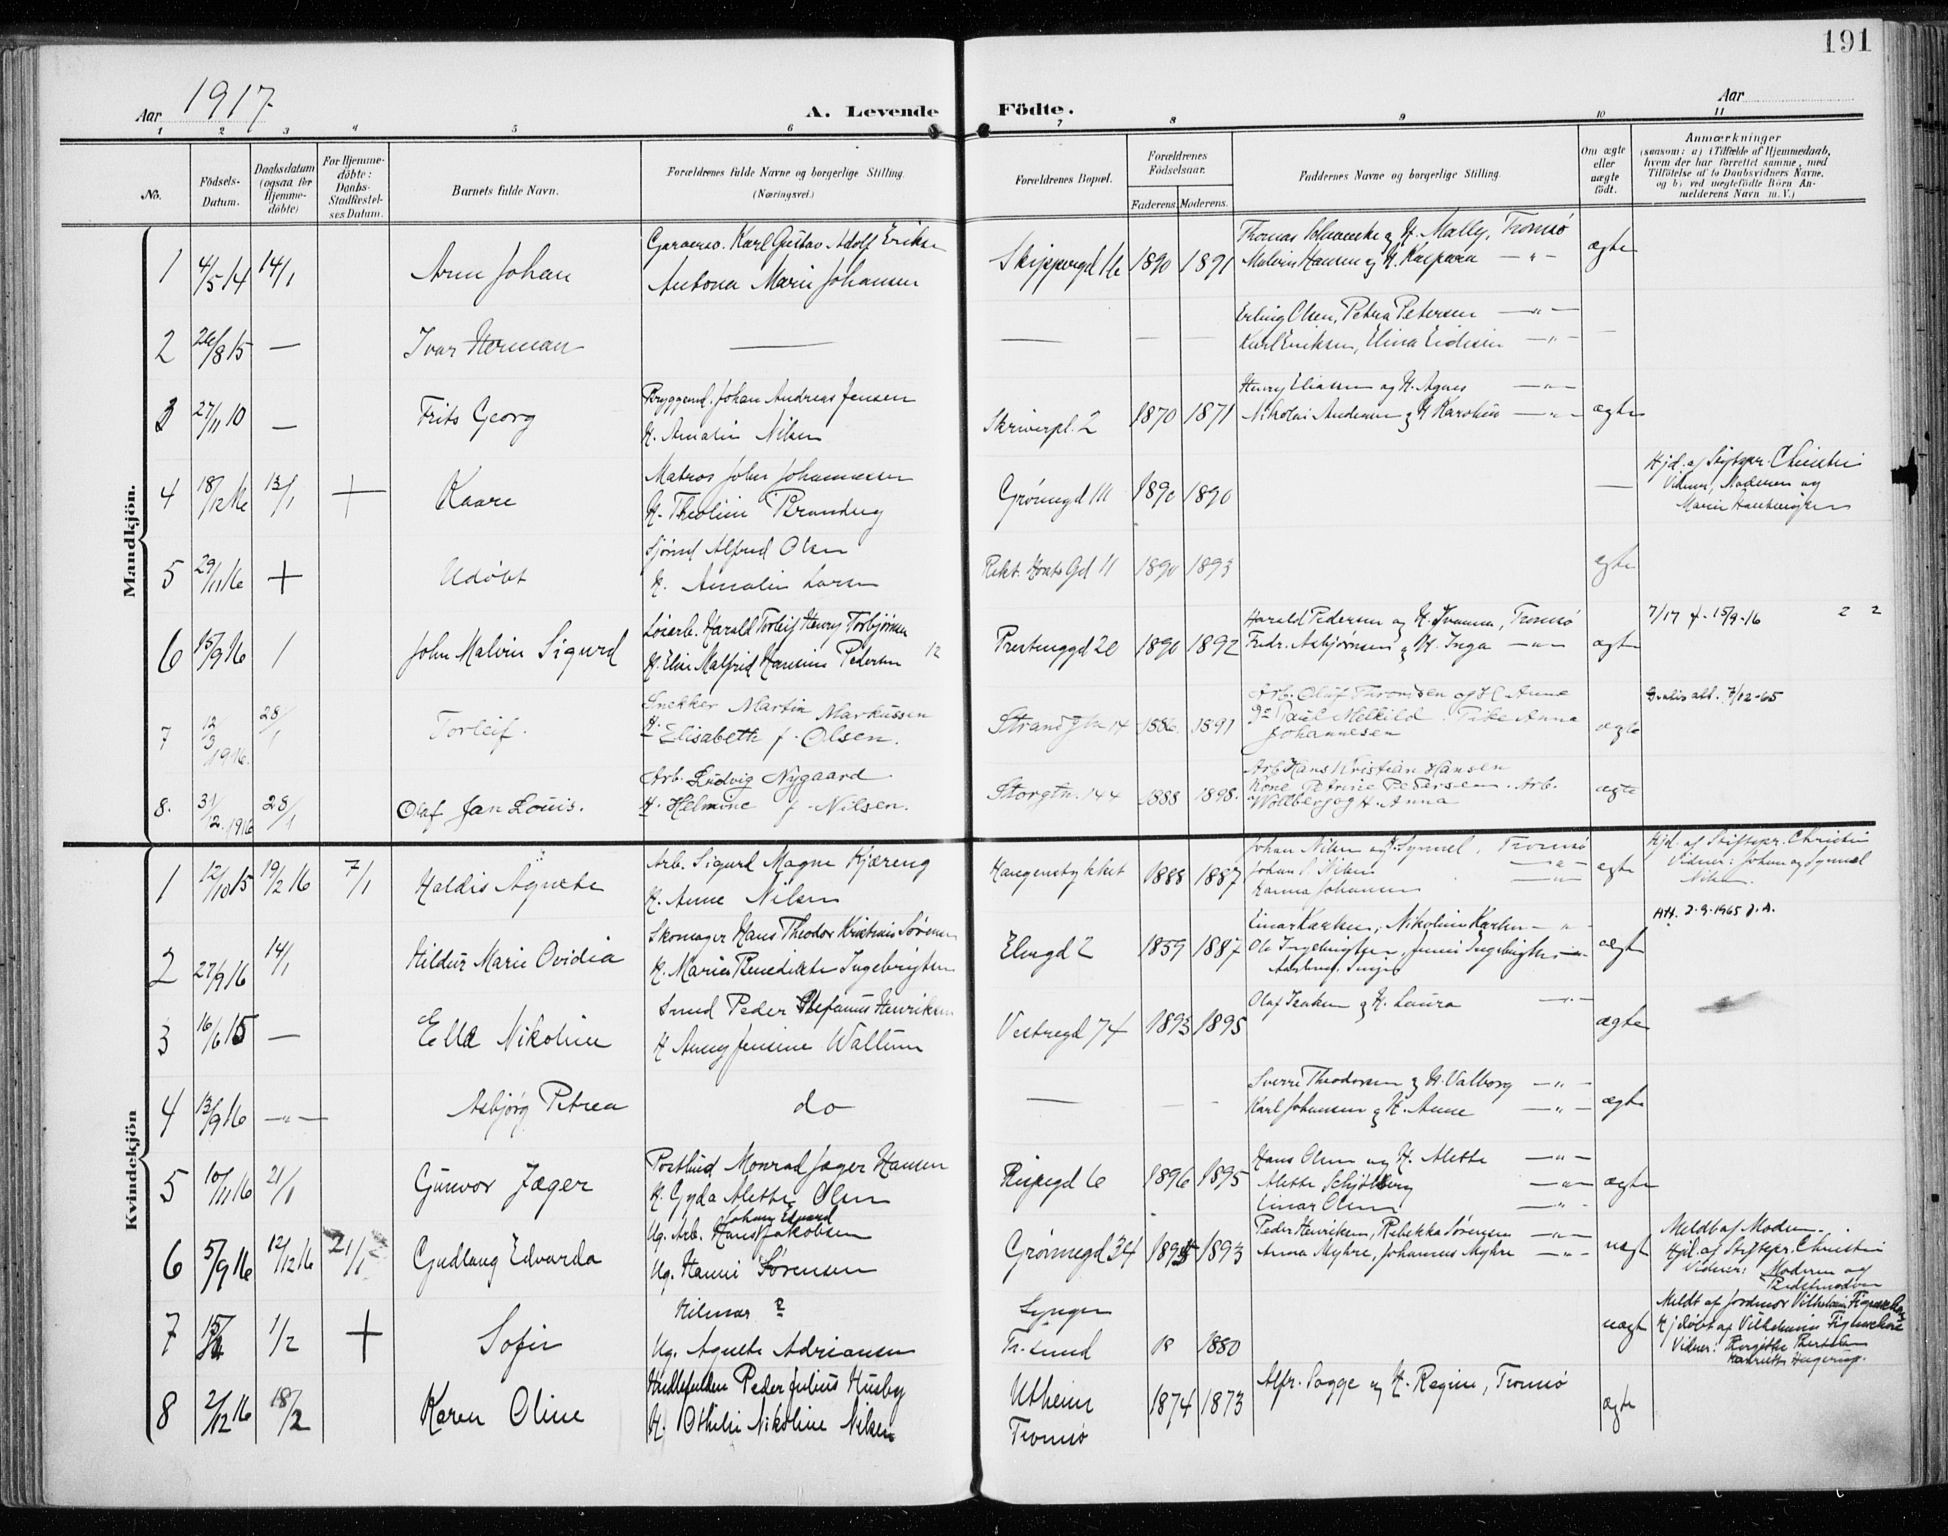 191
Aar 1917.
A. Levende Födte.
Aar
1 2 3 4 5 6 7 8 9 10 11
No.
Födsels-Datum.
Daabsdatum (ogsaa for Hjemmedöbte)
For Hjemmedöbte: Daabs-Stadfæstelses Datum.
Barnets fulde Navn.
Forældrenes fulde Navne og borgerlige Stilling. (Næringsvei.)
Forældrenes Bopæl.
Forældrenes Födselsaar.
Faderens. Moderens.
Faddernes Navne og borgerlige Stilling.
Om ægte eller uægte födt.
Anmærkninger
(saasom: a) i Tilfælde af Hjemmedaab, hvem der har forrettet samme, med Tilföielse af to Daabsvidners Navne, og b) ved uægtefödte Börn Anmelderens Navn m. V.)
Mandkjön.
1 4/5 14 14/1 Arne Johan
Karl Gustav Adolf Eriksen
Antona Marie Johansen
Skippergd 16 1890 1891
H. Mally, Tromsø
Malvin Hansen og H. Kaspara — " —
ægte
2 26/8 15 — Ivar Herman —
Erling Olsen, Petra Petersen — " —
Karl Eriksen, Elina Eidisen — " —
3 27/11 10 — Frits Georg
Johan Andreas Jensen
H. Amalie Nilsen
Skriverpl. 2 1870 1871
Henry Eliassen og H. Agnes — " —
Nikolai Andersen og H Karoline — " —
ægte
4 18/12 16 13/1 + Kaare
Matros John Johannessen
H. Theoline
Grønnegd 111 1890 1890
—
Hjd. af Stiftspr. Christie
Vidner, Moderen og
Marie
5 29/11 16 + Udøbt
Alfred Olsen
H. Amalie Larsen
Rekt. Horst Gd 11 1890 1893
ægte
6 15/9 16 1 John Malvin Sigurd
Harald Torleif Henry Torbjörnsen
H. Elise Malfrid Hansine Pedersen 12
Prestenggd 20 1890 1892
Harald Pedersen og H. Tromsø
Fredr. Asbjørnsen og H. Inga — " —
ægte
7/17 f. 15/9-16 2 2
7 12/3 1916. 28/1 Torleif.
Snekker Martin Markussen
H. Elisabeth f. Olsen.
Strandgtn 14 1886. 1891
Arb. Oluf Thorvildsen og H. Anna
Paul Melkild. Pike Anna
Johannesen
ægte
Gratis att. 7/12-65
8. 31/12. 1916 28/1 Olaf Jan Louis.
Arb. Ludvig Nygaard
H. Helmine f. Nilsen.
Storgtn. 144 1888 1898.
Arb Hans Kristian Hansen
Kone Petrine Pedersen. Arb.
Wollberg og H. Anna
ægte
Kvindekjön
1 12/10 15 19/2 16 7/1 Haldis Agnete
Arb. Sigurd Magne Kjæreng
H. Anne Nilsen
Hangenstykket 1888 1887
Johan Nilsen og H. Synnel. Tromsø
Johan P. Nilsen — " —
Karina Johansen — " —
ægte
Hjd. af Stiftspr. Christie
Vidner: Johan og Synnel
Nilsen.
2 27/9 16 14/1 Hildur Marie Ovidia
Skomager Hans Theodor Kristian Sørensen
H. Marie Benedikte Ingebrigtsen
Elvegd 2 1859 1887
Einar Karlsen, Nikoline Karlsen — " —
Ole Ingebrigtsen, Jenni Ingebrigtsen — " —
ægte
Att. 2.9.1965 J.A.
3 16/6 15 — Ella Nikoline
Smed Peder Stefanus Henriksen
H Anny Jensine Wallum
Vestregd 74 1893 1895
Olaf Isaksen og H. Laura — " —
ægte
4 13/9 16 — " — Asbjørg Petrea
do
— — —
Sverre Theodorsen og H. Valborg — " —
Karl Johansen og H. Anne — " —
ægte
5 10/11 16 21/1 Gunvor Jæger
Postbud Monrad Jæger Hansen
H. Gyda Alette Olsen
Ripegd 6 1896 1895
Hans Olsen og H. Alette — " —
Alette Schjølberg — " —
Einar Olsen — " —
ægte
6 5/9 16 12/12 16 21/1 Gudlaug Edvarda
Johan Edvard
Ug. Arb. Hans Jakobsen
Ug. Hanni Sørensen
Grønnegd 34 1893
Peder Henriksen, Rebekka Sørensen — " —
Anna Myhre, Johannes Myhre — " —
uægt
Meldt af Moderen.
Hjd. af Stiftspr. Christie
Vidner: Moderen og
Bedstemoderen
7 1/2 + Sofie
Hilmar ?
Ug. Agnete Adriansen
Lyngen
Tr. sund 18 1880
uægt
Meldt af Jordmor Vilhelmine
Hjdøbt af Vilhelmine
Vidner:
8 2/12 16 18/2 Karen Oline
Peder Julius Husby
H. Othelie Nikoline Nilsen
Utheim
Tromsø
1874 1873
Alfr. Sagge og H. Regine, Tromsø
ægte